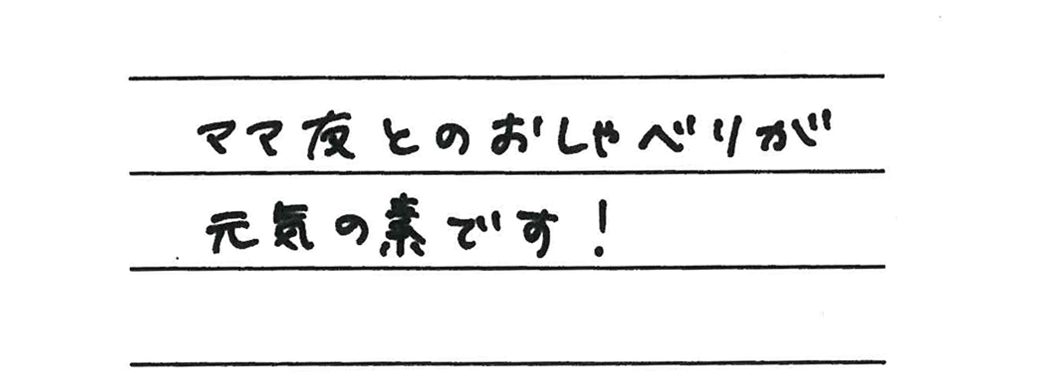 ママ友とのおしゃべりが
元気の素です！